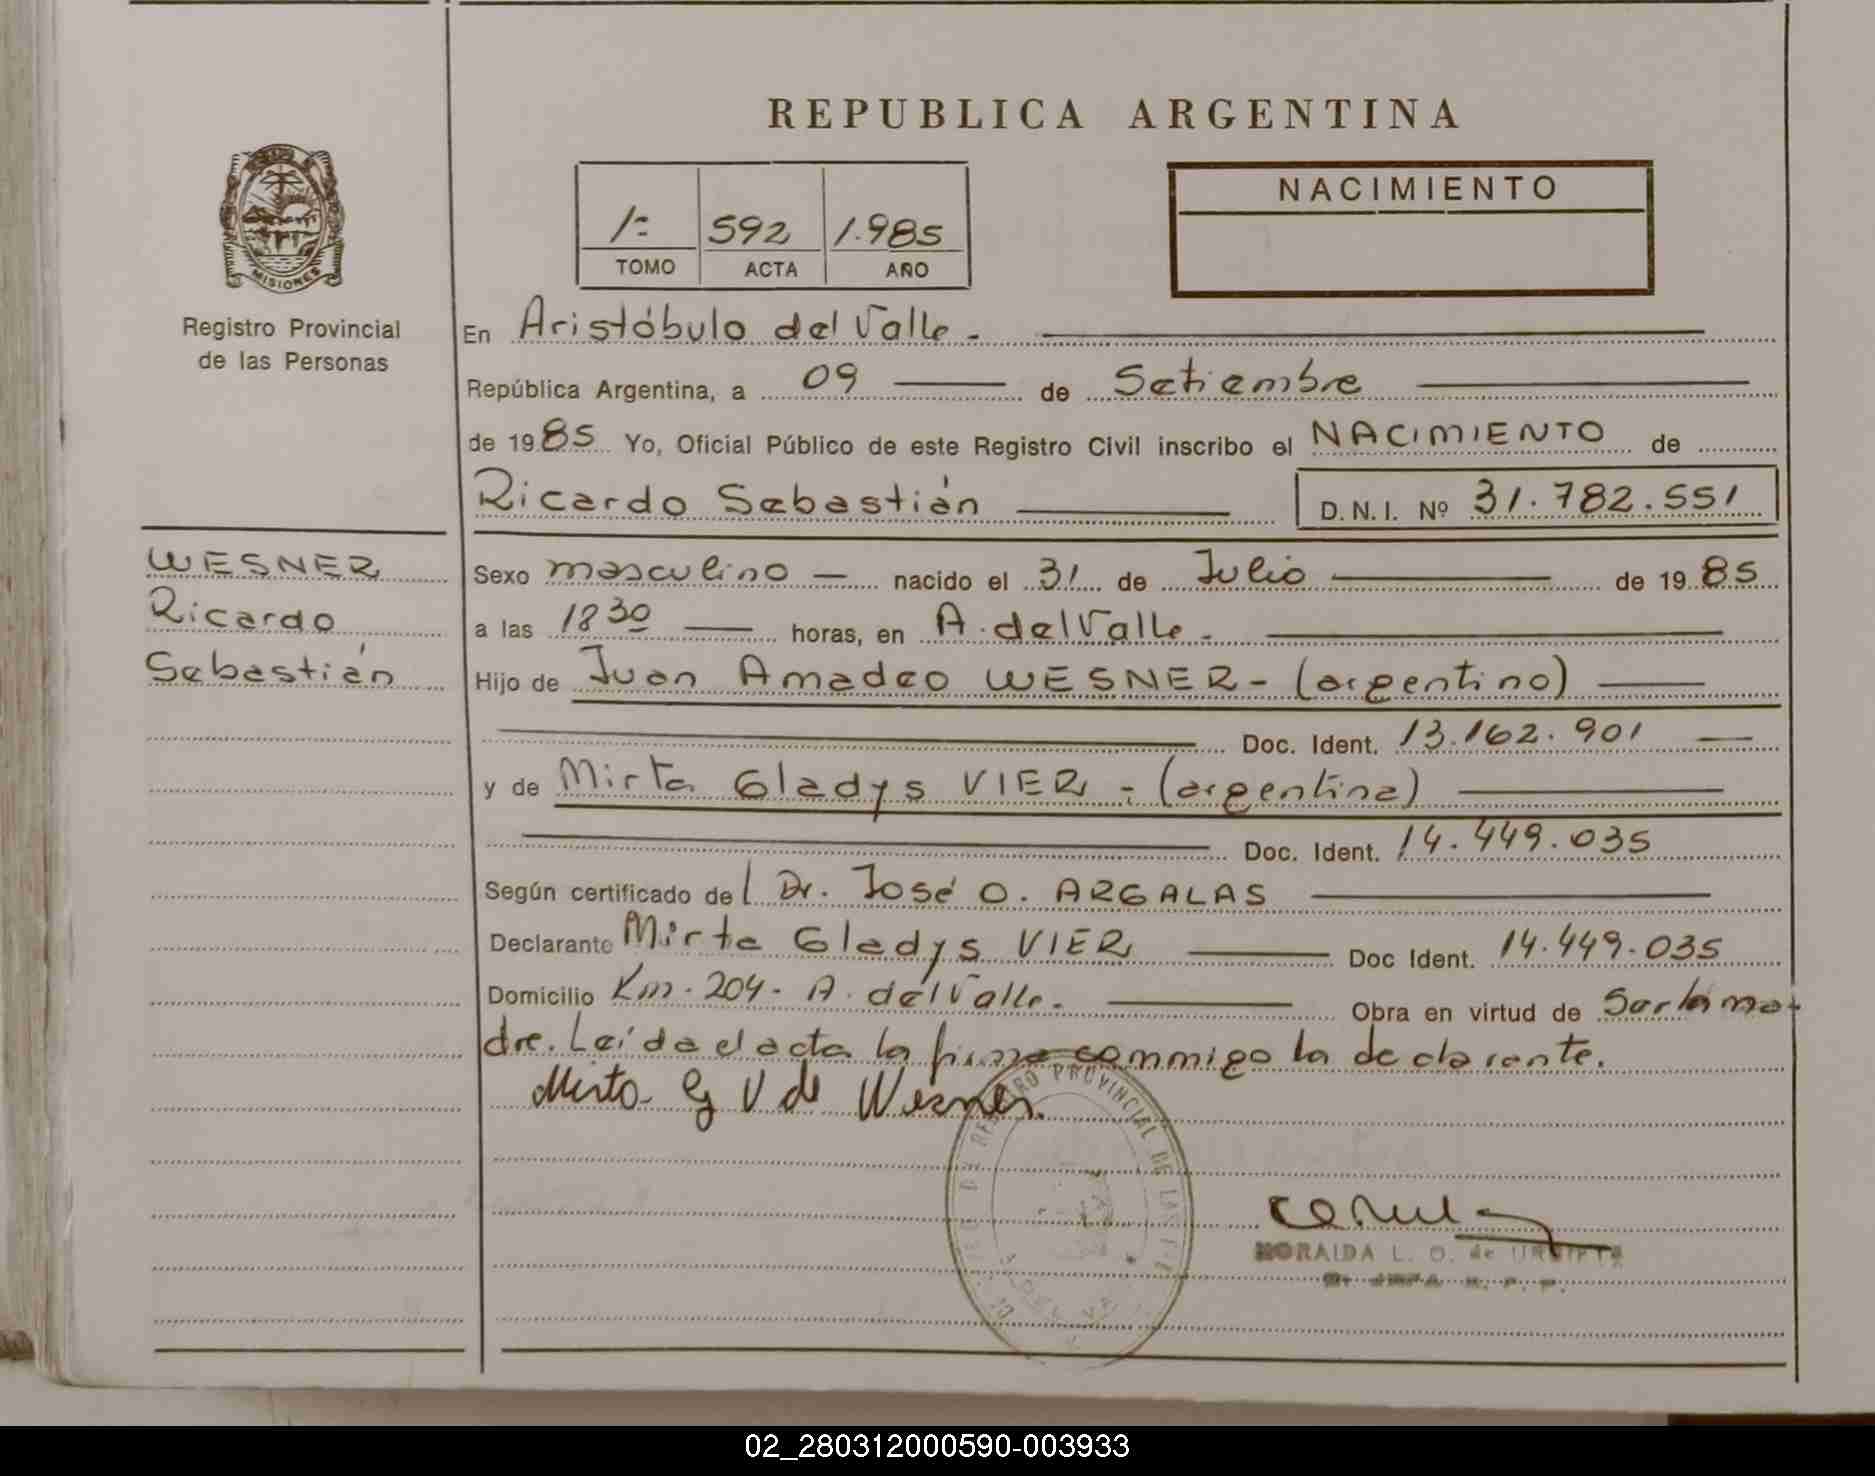 REPUBLICA ARGENTINA
MISIONES
Registro Provincial
de las Personas
1= 592 1.985
TOMO ACTA AÑO
NACIMIENTO
En Aristóbulo del Valle.
República Argentina, a 09 de Setiembre
de 1985 Yo, Oficial Público de este Registro Civil inscribo el NACIMIENTO de
Ricardo Sebastián D.N.I. Nº 31.782.551
WESNER
Ricardo
Sebastián
Sexo masculino — nacido el 31 de Julio de 1985
a las 18 30 horas, en A. del Valle.
Hijo de Juan Amadeo WESNER - (argentino)
Doc. Ident. 13.162.901
y de Mirta Gladys VIER - (argentina)
Doc. Ident. 14.449.035
Según certificado del Dr. José O. ARGALAS
Declarante Mirta Gladys VIER Doc Ident. 14.449.035
Domicilio Km. 204 - A. del Valle. Obra en virtud de Ser la ma-
dre. Leída el acta la firma conmmigo la declarante.
Mirta G V de Wesner.
REGISTRO PROVINCIAL DE LAS
L. O. de
02_280312000590-003933